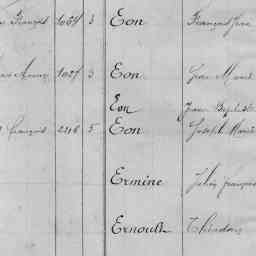 François 1054 3 Eon François Jean
1027 3 Eon Jean Marie
Eon Jean Baptiste
François 2216 5 Eon Joseph Marie
Ermine Jules François
Ernoult Théodore